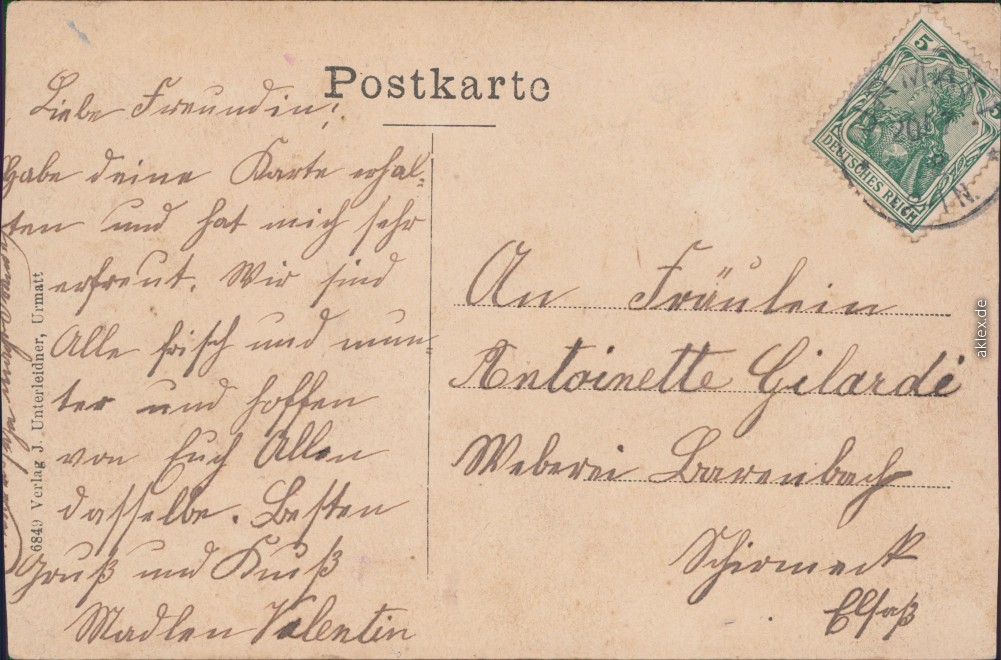 Postkarte
Liebe Freundin!
Habe deine Karte erhal-
ten und hat mich sehr
erfreut. Wir sind
Alle frisch und mun-
ter und hoffen
von Euch Allen
dasselbe. Besten
Gruß und Kuß
Madlen Valentin
6849 Verlag J. Unterleidner, Urmatt
5
DEUTSCHES REICH
An Fräulein
Antoinette Gilardé
Weberei Barenbach
Schirmeck
Elsaß
aklex.de